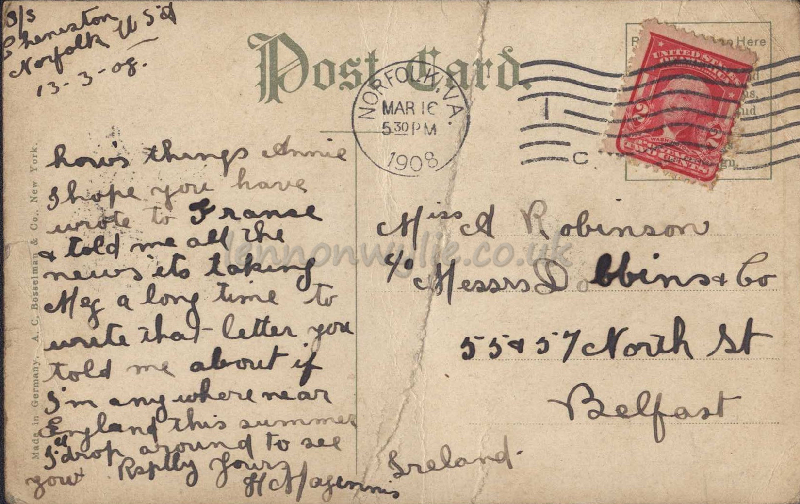 S/S
Cheniston
Norfolk USA
13-3-08-
Post Card.
NORFOLK, VA.
MAR 16
5 30 PM
1908
C
UNITED STATES
TWO CENTS
how's things Annie
I hope you have
wrote to Franse
& told me all the
news its taking
Meg a long time to
wrote that letter you
told me about if
I'm any where near
England this summer
I'll drop around to see
you
Rsptlly Yours
H Magennis
Miss A Robinson
c/o Messrs Dobbins & Co
55 & 57 North St
Belfast
Ireland.
Made in Germany. A. C. Bosselman & Co., New York.
lennonwylie.co.uk